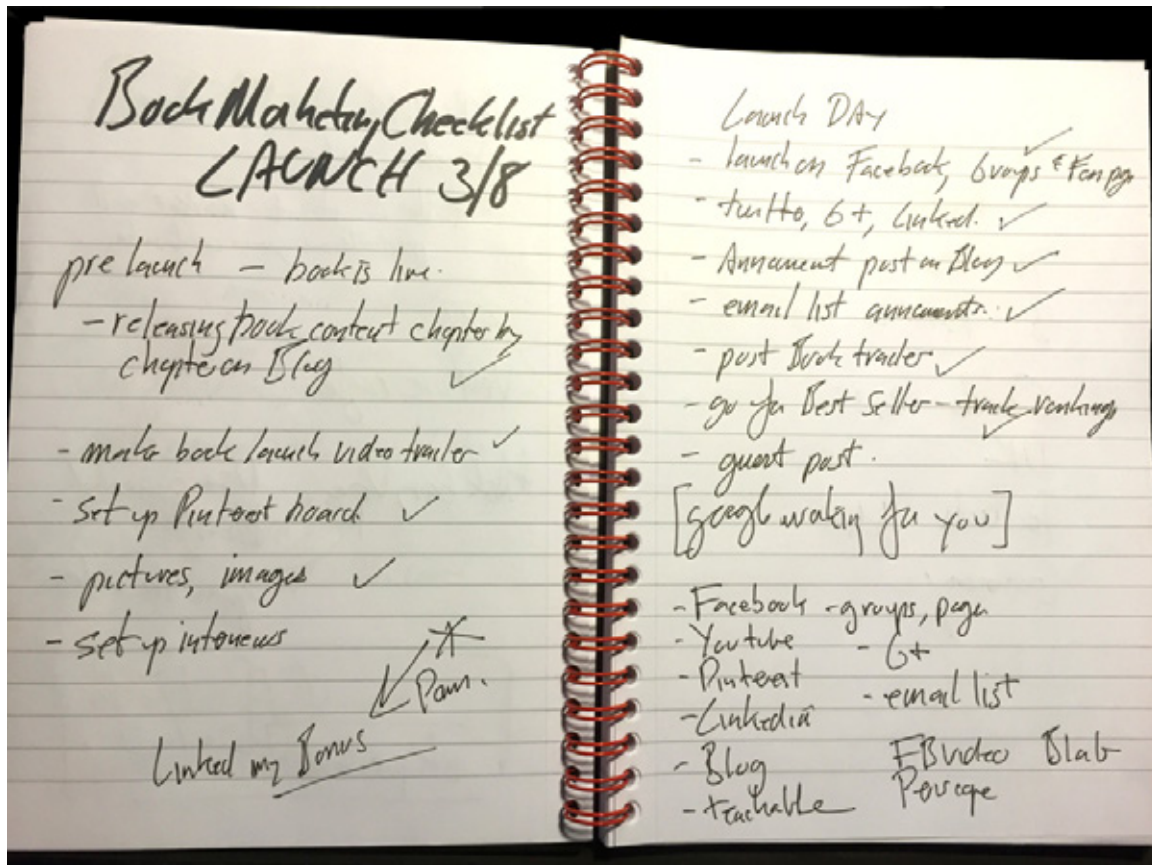 Book Marketing Checklist
LAUNCH 3/8
pre launch – book is live.
- releasing book content chapter by
chapter on Blog ✓
- make book launch video trailer ✓
- set up Pinterest board ✓
- pictures, images ✓
- set up interviews
Linked my Bonus
Launch DAy
- launch on Facebook, Groups & Fan page ✓
- twitter, G+, Linked. ✓
- Announcement post on Blog ✓
- email list announcements. ✓
- post Book trailer ✓
- go for Best Seller – track rankings ✓
- guest post.
[google working for you]
- Facebook - groups, page
- Youtube - G+
- Pinterest - email list
- Linkedin
- Blog FBvideo Blab
- teachable Periscope